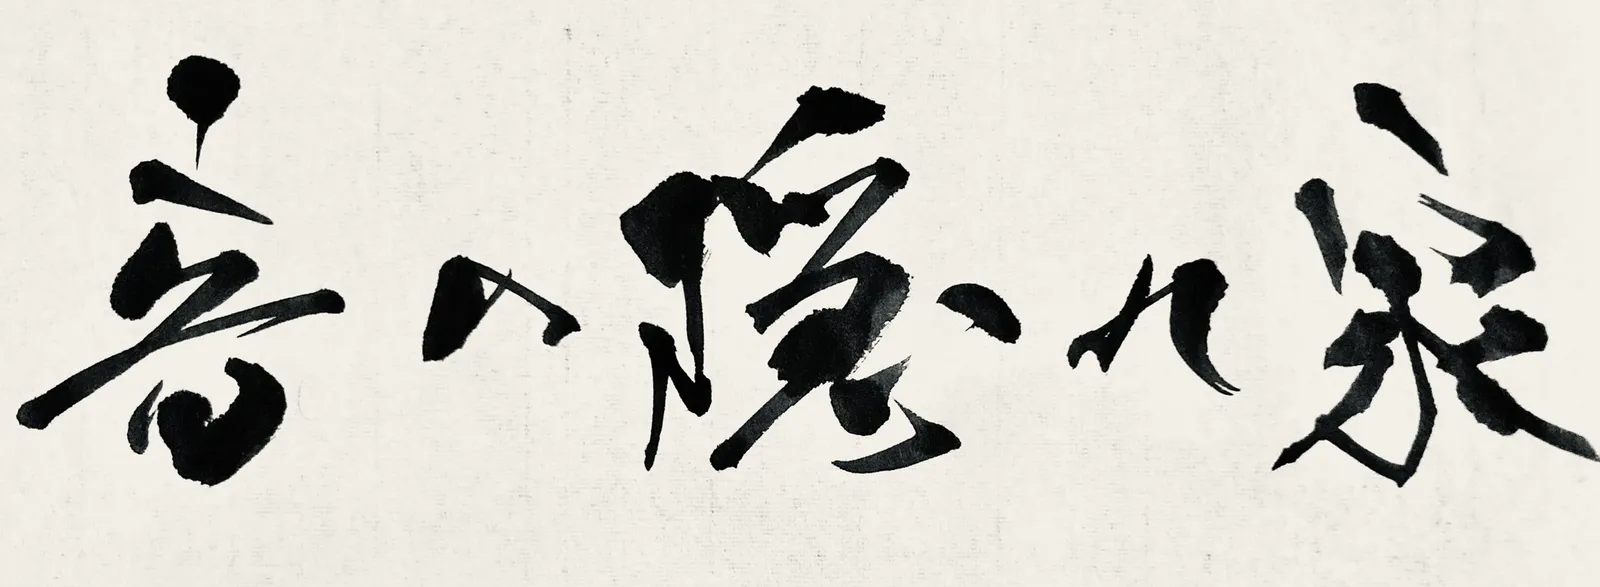 音の隠れ家